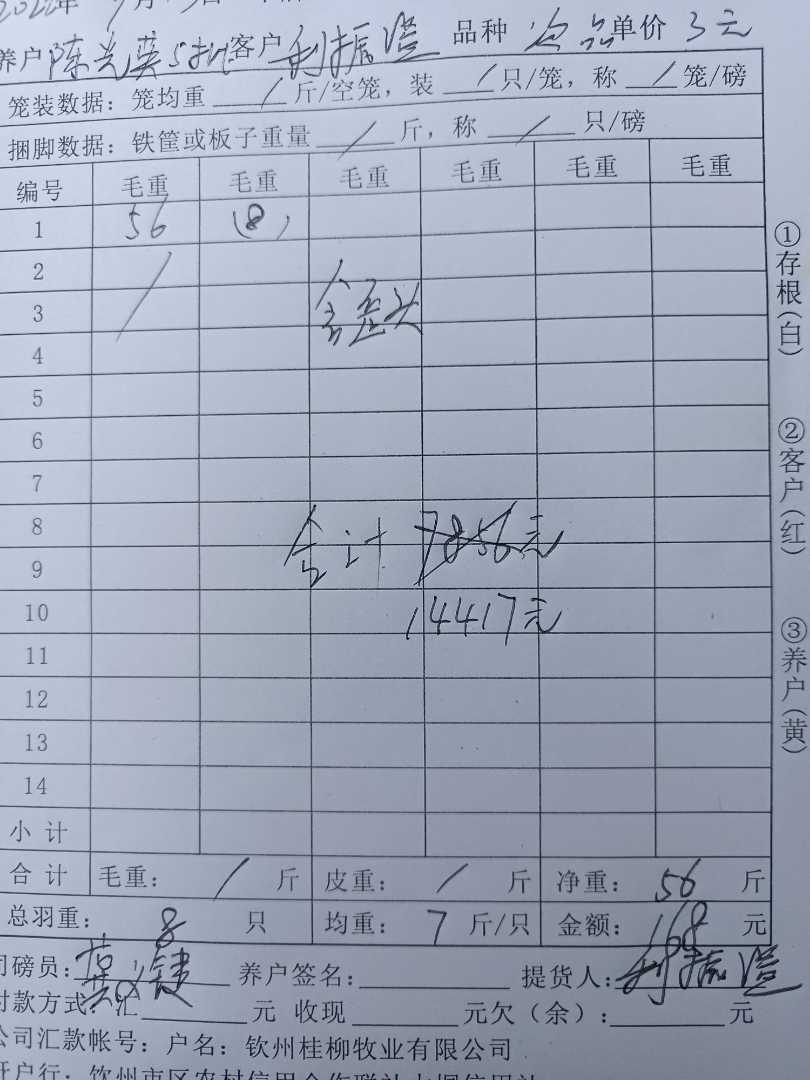 2022年 9月 日
养户 陈光英5批 客户 利振溢 品种 次品 单价 3元
笼装数据：笼均重 / 斤/空笼，装 / 只/笼，称 / 笼/磅
捆脚数据：铁筐或板子重量 / 斤，称 / 只/磅
编号 毛重 毛重 毛重 毛重 毛重 毛重
1 56 (8)
2 /
3 含歪头
4
5
6
7
8 合计 7856元
9
10 14417元
11
12
13
14
小计
合计 毛重： / 斤 皮重： / 斤 净重： 56 斤
总羽重： 8 只 均重： 7 斤/只 金额： 168 元
司磅员： 养户签名： 提货人：利振溢
付款方式：汇 元 收现 元欠（余）： 元
公司汇款帐号：户名：钦州桂柳牧业有限公司
开户行：钦州市区农村信用合作联社
①存根(白) ②客户(红) ③养户(黄)